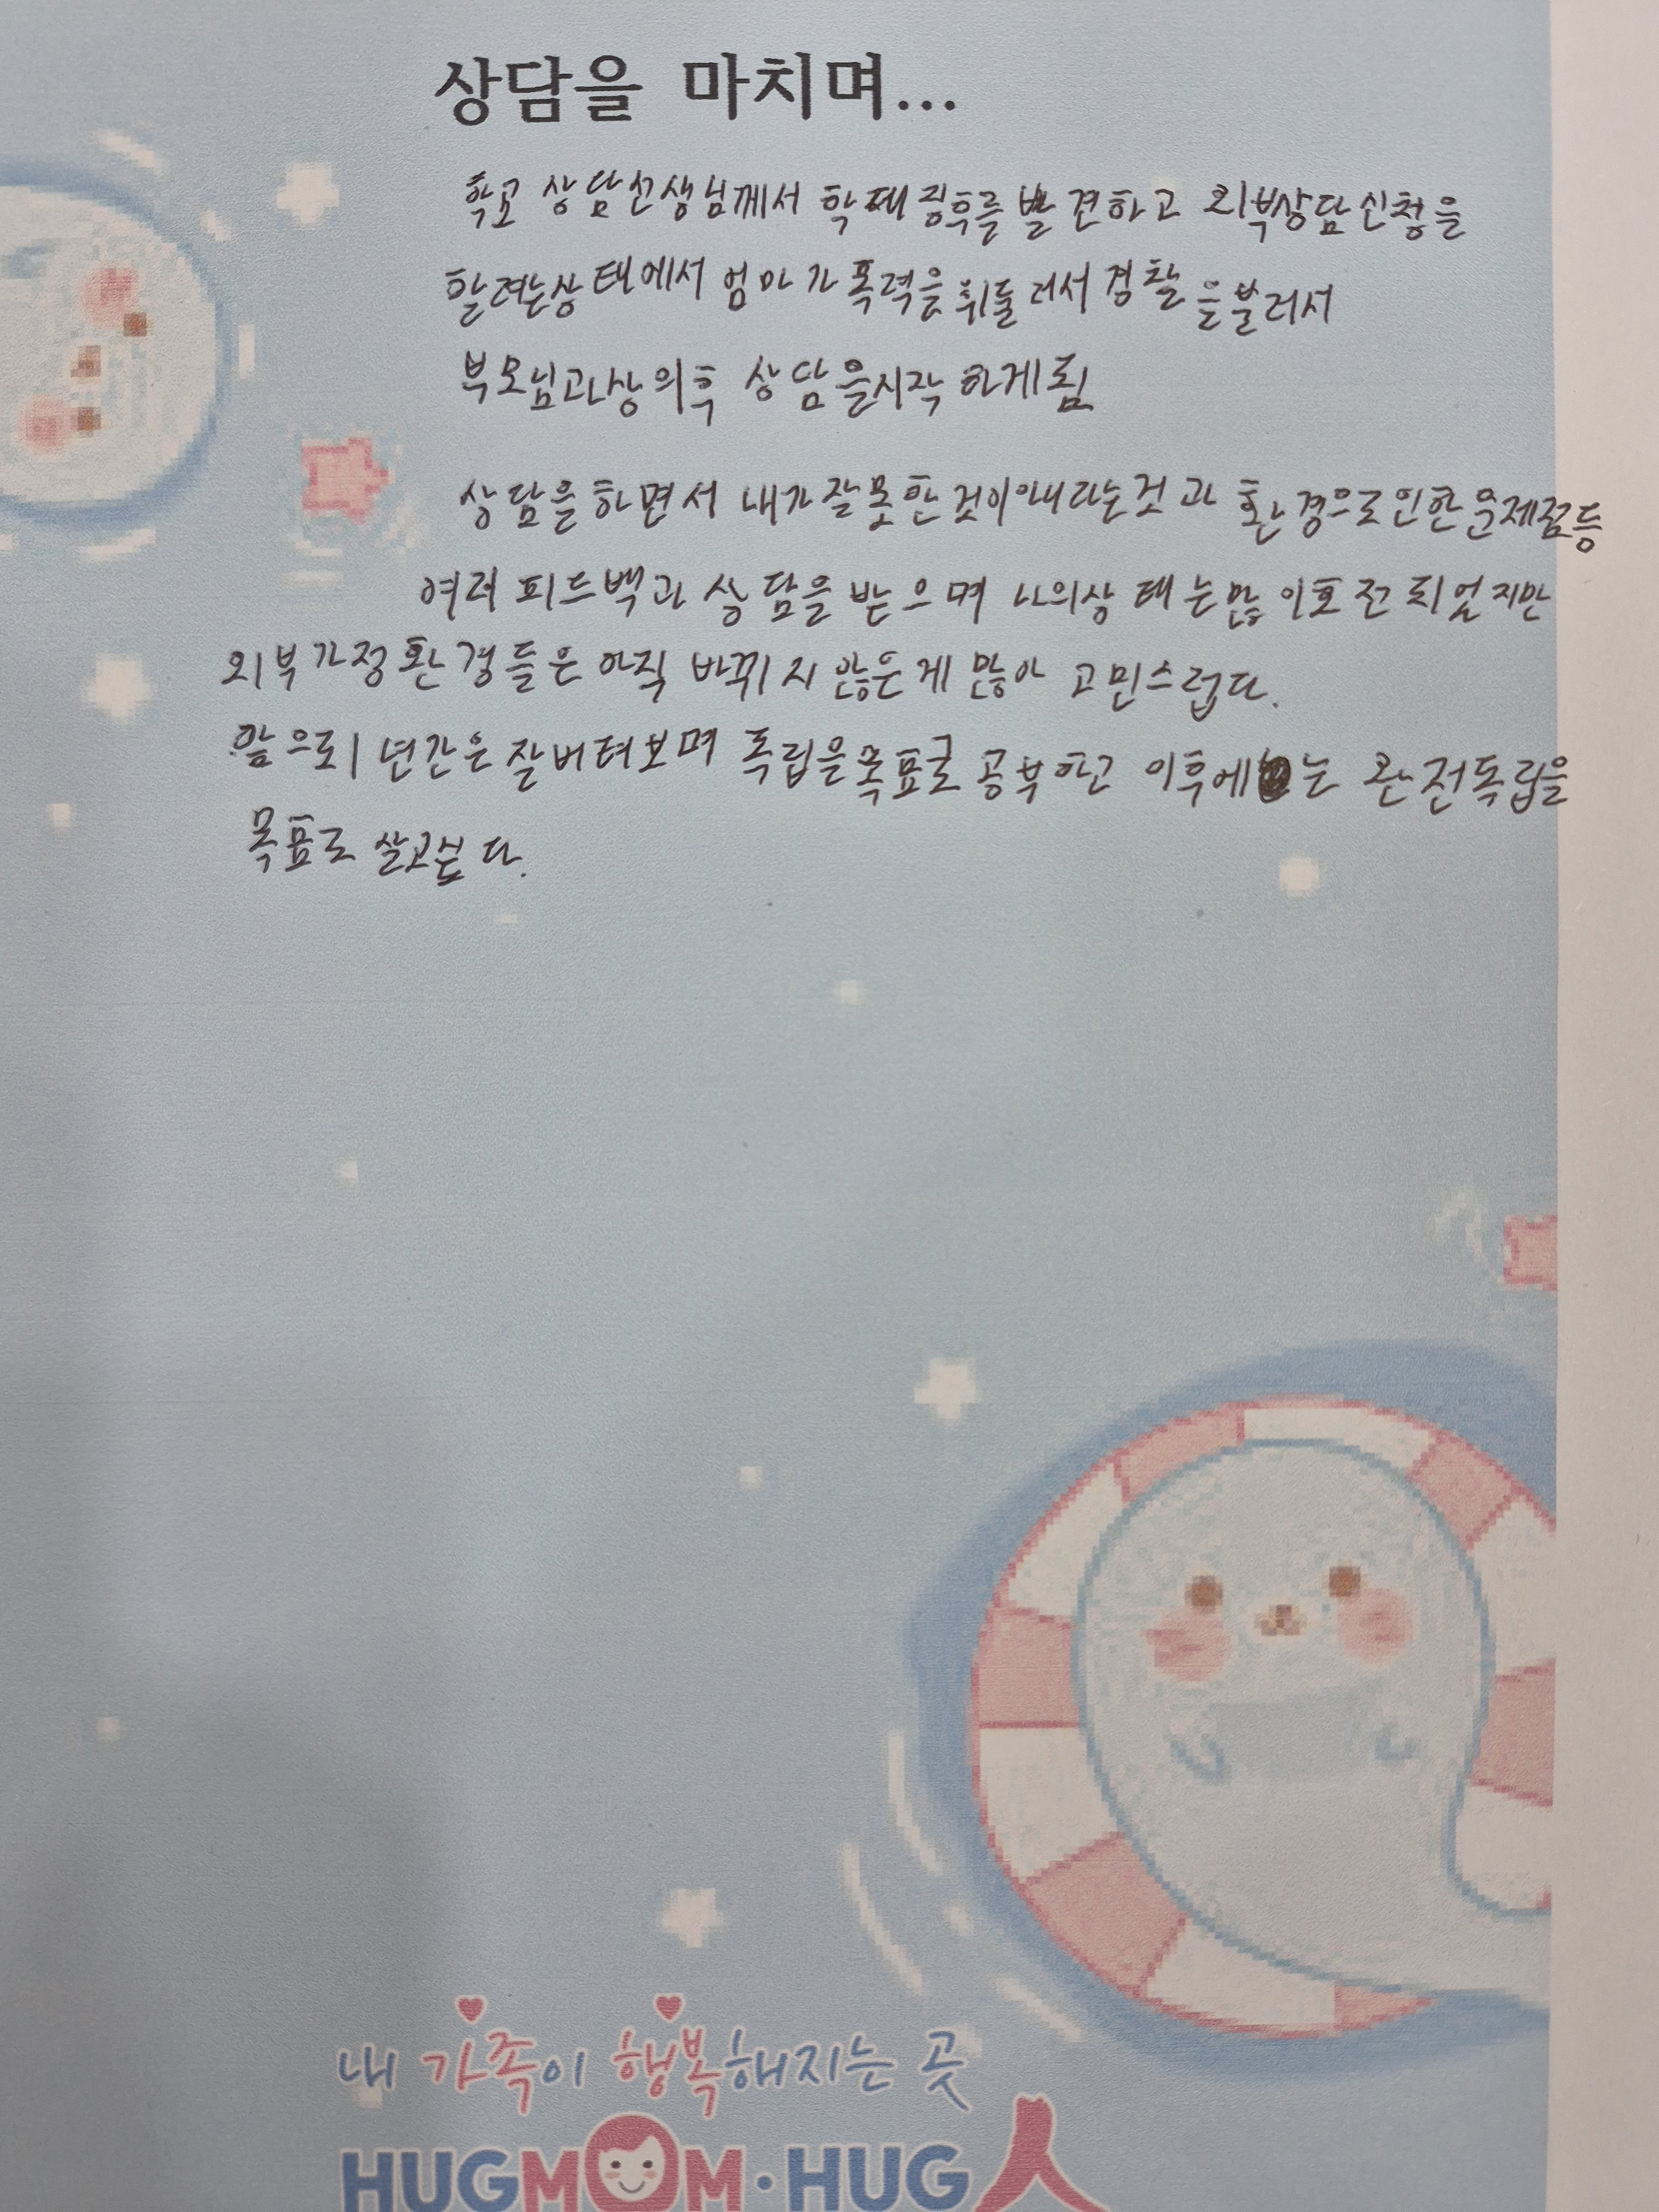 상담을 마치며...
학교 상담선생님께서 학대징후를 발견하고 외부상담신청을
할려는상태에서 엄마가 폭력을 휘둘러서 경찰을불러서
부모님과상의후 상담을시작 하게됨
상담을하면서 내가잘못한것이아니라는것과 환경으로인한문제점등
여러 피드백과 상담을 받으며 나의상태는많이호전되었지만
외부가정환경들은 아직 바뀌지 않은게 많아 고민스럽다.
앞으로1년간은잘버텨보며 독립을목표로 공부하고 이후에는 완전독립을
목표로 살고싶다.
내 가족이 행복해지는 곳
HUGMOM·HUG人